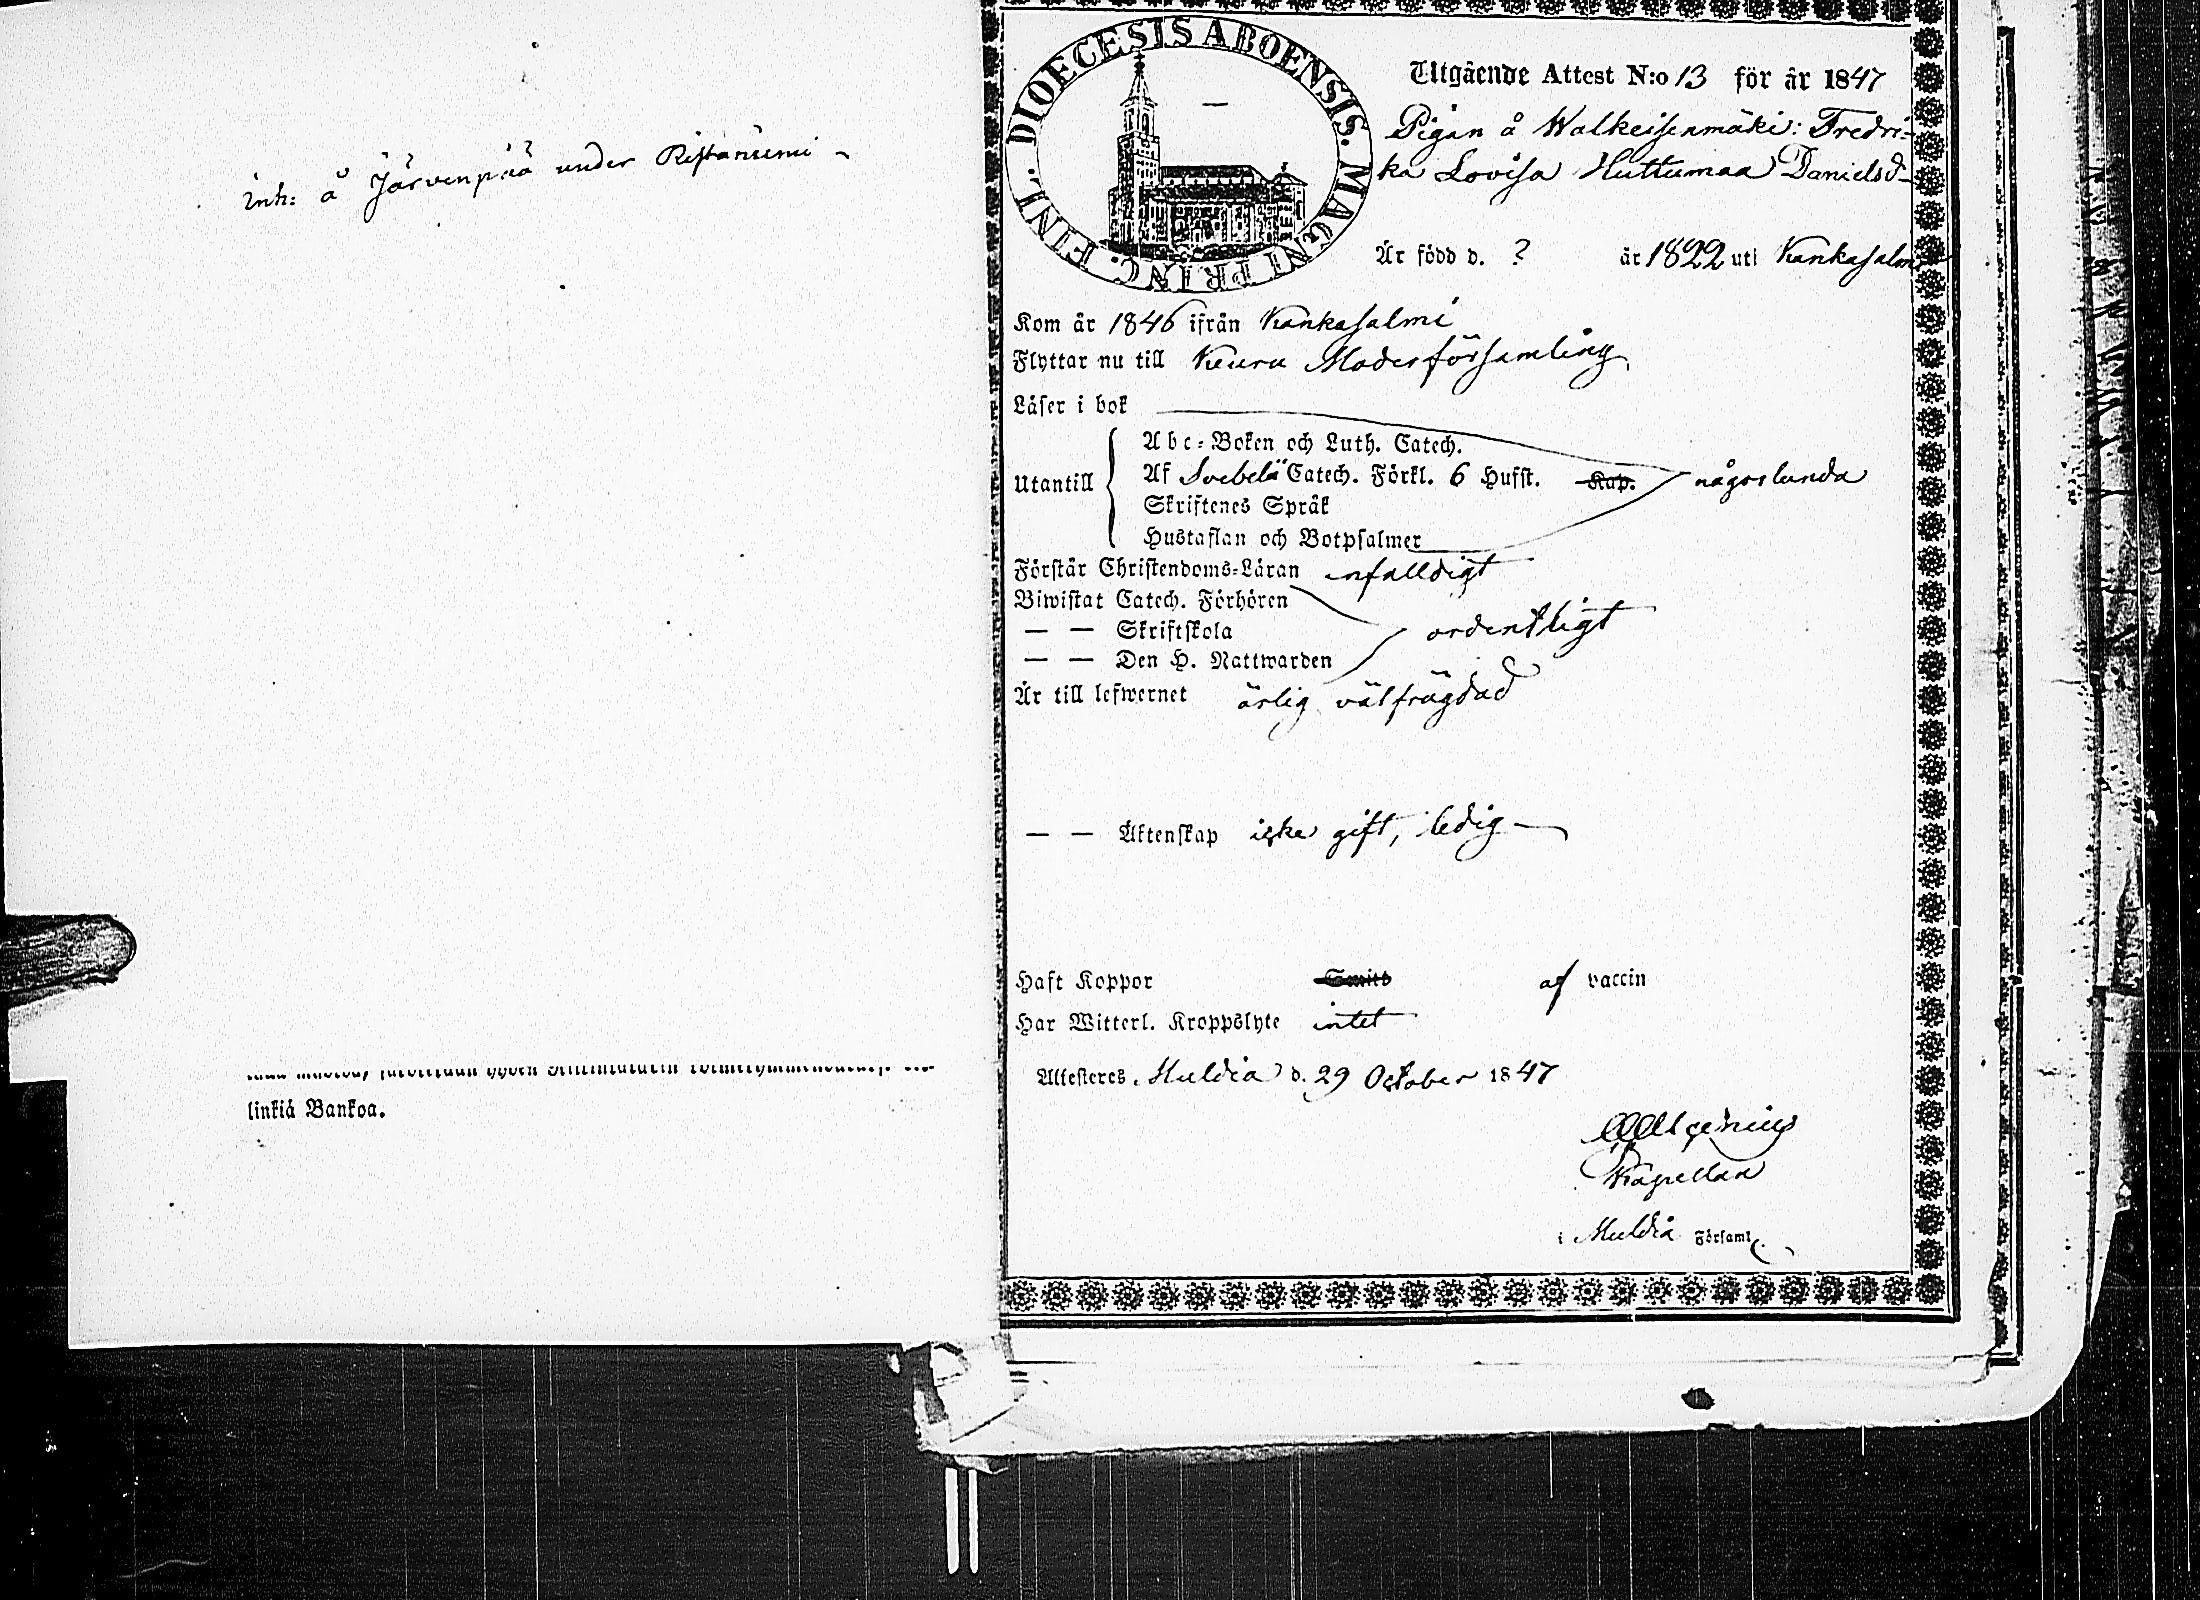 inh: å Järvenpää under Ristaniemi -
linkiä Bankoa.
DIOECESIS ABOENSIS. MAGNI PRINC. FINL.
Utgående Attest N:o 13 för år 1847
Pigan å Walkeisenmäki: Fredri-
ka Lovisa Huttumaa Danielsd-
Är född d. ? år 1822 uti Kankasalmi
Kom år 1846 ifrån Kankasalmi
Flyttar nu till Keuru Moderförsamling
Läser i bok
Abc-Boken och Luth. Catech.
Utantill Af Svebelii Catech. Förkl. 6 Hufst. Kap. någorlunda
Skriftenes Språk
Hustaflan och Botpsalmer
Förstår Christendoms-Läran enfalldigt
Biwistat Catech. Förhören
— — Skriftskola ordentligt
— — Den H. Nattwarden
Är till lefwernet ärlig välfrägdad
— — Äktenskap icke gift, ledig —
Haft Koppor Smitt af vaccin
Har Witterl. Kroppslyte intet
Attesteres, Muldia d. 29 October 1847
Kapellan
i Muldia Församl.